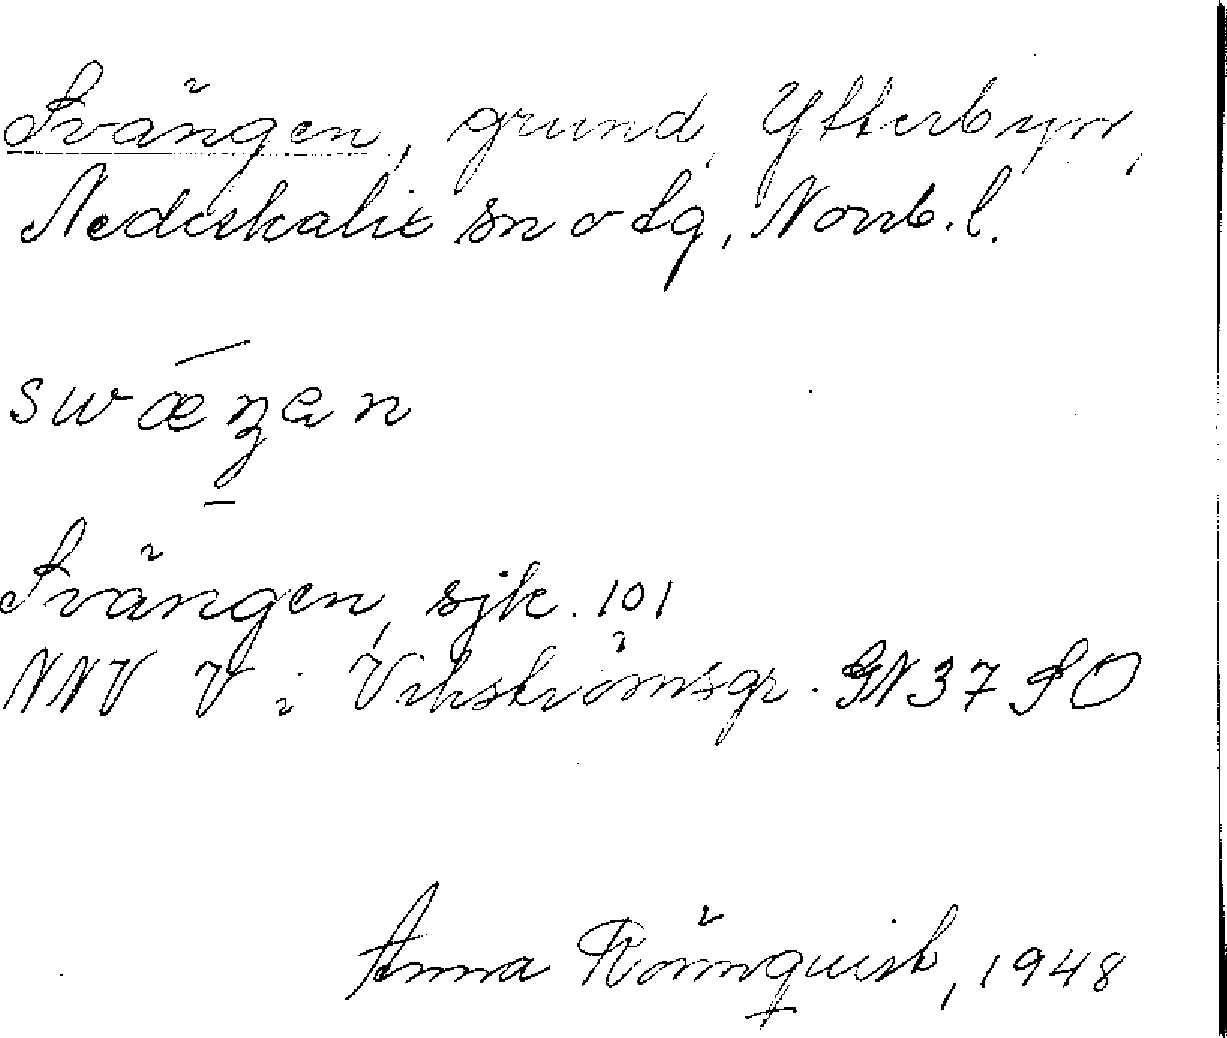 Svängen, grund, Ytterbyn,
Nederkalix sn o tg, Norrb. l.
swæŋən
Svängen, sjk. 101
NNV V i Vikströmsgr. GN 37 SO
Anna Rönnquist, 1948